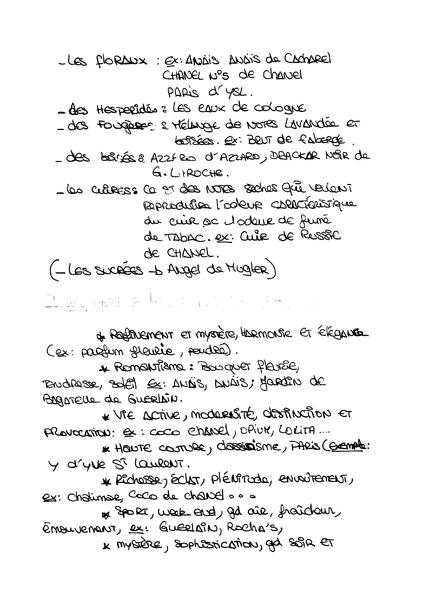 - Les floraux : ex: Anaïs Anaïs de Cacharel
CHANEL N°5 de Chanel
PARIS d'YSL.
- des Hesperidés : les eaux de cologne
- des Fougères : Mélange de notes lavandée et
boisées. ex: BRUT de faberge.
- des boisés : AZZARO d'AZZARO, DRACKAR NOIR de
G. LAROCHE.
- les cuirés : Ce st des notes sèches qui veulent
reproduire l'odeur caractéristique
du cuir ac l'odeur de fumé
de TABAC. ex: Cuir de Russie
de CHANEL.
(- Les sucrées → Angel de Mugler)
* Raffinement et mystère, harmonie et élégance
(ex: parfum fleurie, poudré).
* Romantisme : Bouquet fleurie,
tendresse, soleil ex: Anaïs, Anaïs ; Jardin de
Bagatelle de GUERLAIN.
* Vie active, modernité, distinction et
provocation: ex : coco chanel, opium, Lolita ....
* Haute couture, classisisme, PARIS (exemple:
Y d'yve St Laurent.
* Richesse, éclat, plénitude, envoûtement,
ex: Chalimar, Coco de chanel ...
* Sport, week end, gd air, fraîcheur,
émouvement, ex: Guerlain, Rocha's,
* mystère, sophistication, gd soir et